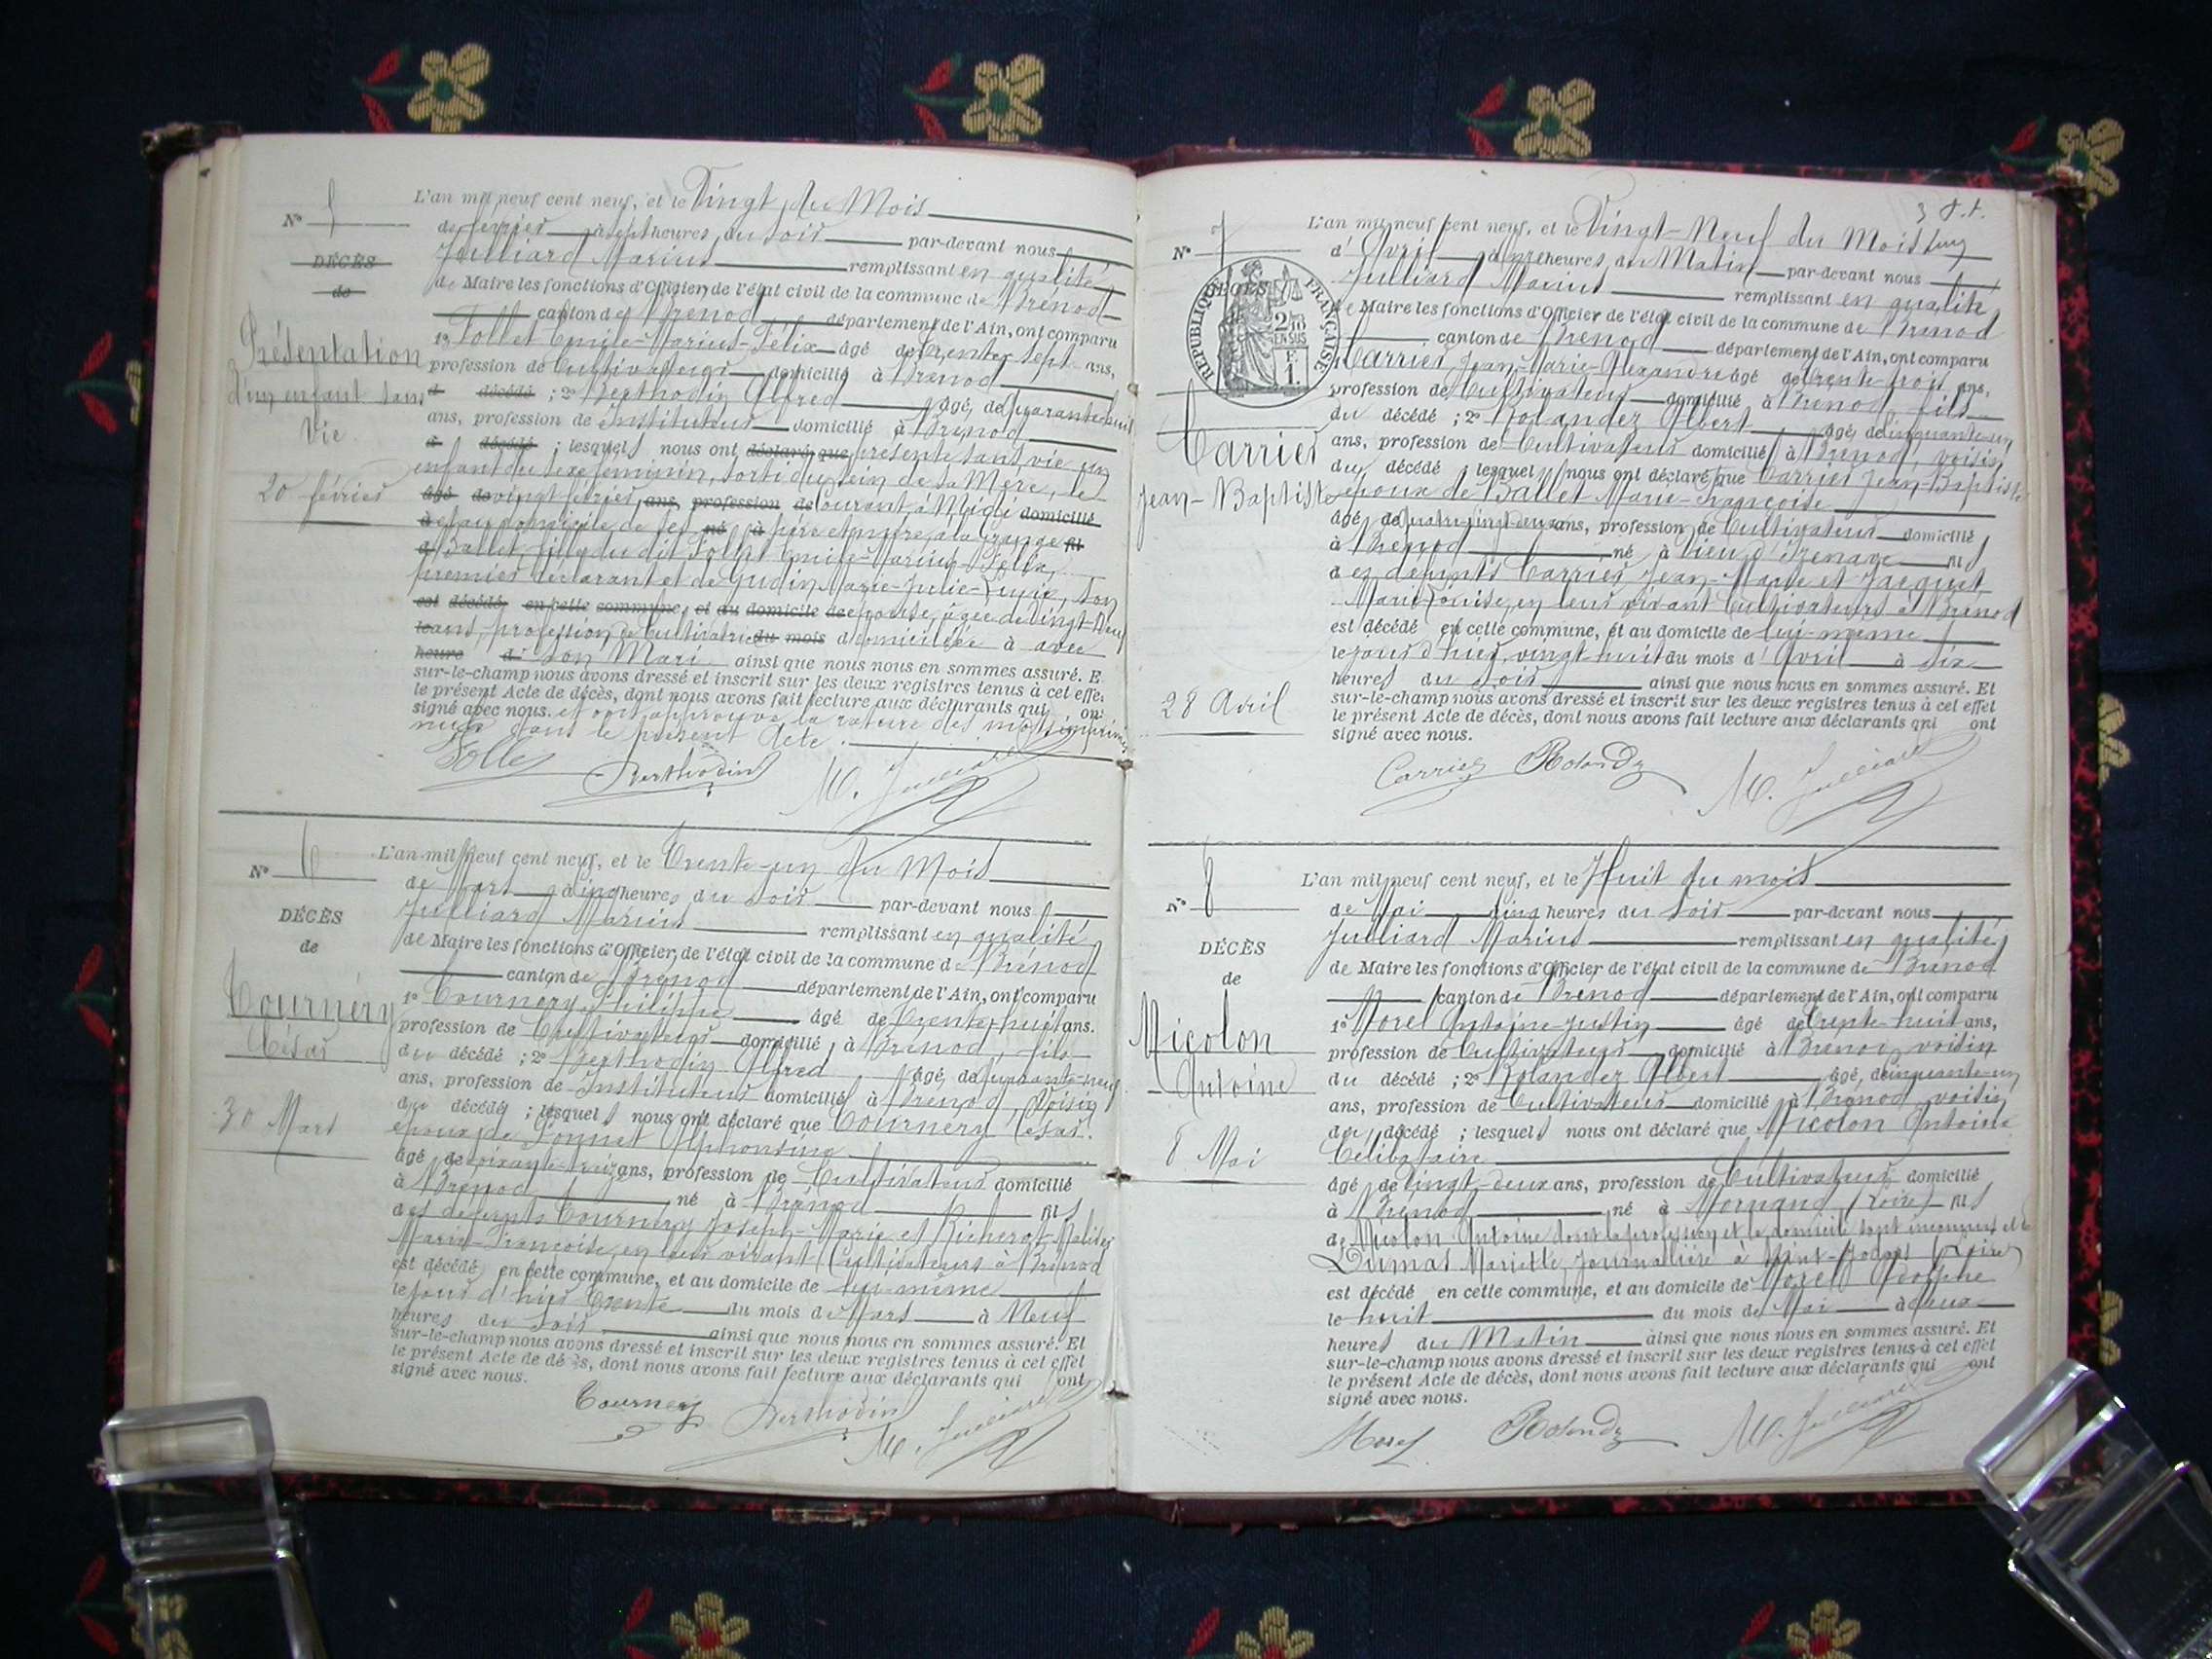 N° 5
DÉCÈS
de
Présentation
d'un enfant sans
vie
20 février
L'an mil neuf cent neuf, et le Vingt du Mois
de février à sept heures du soir par-devant nous
Julliard Marius remplissant en qualité
de Maire les fonctions d'Officier de l'état civil de la commune de Brénod
canton de Brénod département de l'Ain, ont comparu
1° Follet Emile-Marius-Félix âgé de trente-sept ans,
profession de Cultivateur domicilié à Brénod
d décédé ; 2° Berthodin Alfred âgé de quarante-huit
ans, profession de Instituteur domicilié à Brénod
d décédé ; lesquels nous ont déclaré que présenté sans vie un
enfant du sexe féminin, sorti du sein de sa Mère, le
âgé de vingt février ans, profession de courant à Midi domicilié
à et au domicile de ses né à père et mère, à la Grange fil
d Ballet, fille du dit Follet Emile-Marius-Félix,
premier déclarant et de Gudin Marie-Julie- son
est décédé en cette commune, et au domicile de épouse, âgée de Vingt-Neuf
le ans, profession de Cultivatrice du mois domiciliée à avec
heure d son Mari ainsi que nous nous en sommes assuré. E
sur-le-champ nous avons dressé et inscrit sur les deux registres tenus à cet effet
le présent Acte de décès, dont nous avons fait lecture aux déclarants qui ont
signé avec nous. et ont approuvé la rature des mots imprimés
nuls dans le présent Acte.
Follet Berthodin M. Julliard
N° 6
DÉCÈS
de
Tournery
César
30 Mars
L'an mil neuf cent neuf, et le Trente-un du Mois
de Mars à cinq heures du soir par-devant nous
Julliard Marius remplissant en qualité
de Maire les fonctions d'Officier de l'état civil de la commune de Brénod
canton de Brénod département de l'Ain, ont comparu
1° Tournery Philippe âgé de trente-huit ans.
profession de Cultivateur domicilié à Brénod, fils
du décédé ; 2° Berthodin Alfred âgé de quarante-neuf
ans, profession de Instituteur domicilié à Brénod, voisin
du décédé ; lesquels nous ont déclaré que Tournery César.
époux de Ponnet Alphonsine
âgé de soixante-treize ans, profession de Cultivateur domicilié
à Brénod né à Brénod fils
des défunts Tournery Joseph-Marie et Richerot
Marie-Françoise, en leur vivant Cultivateurs à Brénod
est décédé en cette commune, et au domicile de lui-même
le jour d'hier trente du mois de Mars à Neuf
heures du soir ainsi que nous nous en sommes assuré. Et
sur-le-champ nous avons dressé et inscrit sur les deux registres tenus à cet effet
le présent Acte de décès, dont nous avons fait lecture aux déclarants qui ont
signé avec nous.
Tournery Berthodin M. Julliard
3
N° 7
RÉPUBLIQUE FRANÇAISE
DÉCÈS
2/10
EN SUS
F.
1.
Carrier
Jean-Baptiste
28 Avril
L'an mil neuf cent neuf, et le Vingt-Neuf du Mois
d'Avril à onze heures du Matin par-devant nous
Julliard Marius remplissant en qualité
de Maire les fonctions d'Officier de l'état civil de la commune de Brénod
canton de Brénod département de l'Ain, ont comparu
1° Carrier Jean-Marie-Alexandre âgé de trente-trois ans,
profession de Cultivateur domicilié à Brénod, fils
du décédé ; 2° Rolandez Albert âgé de cinquante-un
ans, profession de Cultivateur domicilié à Brénod, voisin
du décédé ; lesquels nous ont déclaré que Carrier Jean-Baptiste
époux de Ballet Marie-Françoise
âgé de quatre-vingt-deux ans, profession de Cultivateur domicilié
à Brénod né à lieu d'Izenave fils
des défunts Carrier Jean-Marie et Jacquet
Marie-Louise, en leur vivant Cultivateurs à Brénod
est décédé en cette commune, et au domicile de lui-même
le jour d'hier, vingt-huit du mois d'Avril à six
heures du soir ainsi que nous nous en sommes assuré. Et
sur-le-champ nous avons dressé et inscrit sur les deux registres tenus à cet effet
le présent Acte de décès, dont nous avons fait lecture aux déclarants qui ont
signé avec nous.
Carrier Rolandez M. Julliard
N° 8
DÉCÈS
de
Micolon
Antoine
8 Mai
L'an mil neuf cent neuf, et le Huit du mois
de Mai cinq heures du soir par-devant nous
Julliard Marius remplissant en qualité
de Maire les fonctions d'Officier de l'état civil de la commune de Brénod
canton de Brénod département de l'Ain, ont comparu
1° Morel Antoine-Justin âgé de trente-huit ans,
profession de Cultivateur domicilié à Brénod, voisin
du décédé ; 2° Rolandez Albert âgé de cinquante-un
ans, profession de Cultivateur domicilié à Brénod voisin
du décédé ; lesquels nous ont déclaré que Micolon Antoine
Célibataire
âgé de vingt-deux ans, profession de Cultivateur domicilié
à Brénod né à Mornand (Loire) fils
de Micolon Antoine dont la profession et le domicile sont inconnus et de
Dumas Mariette, Journalière à (Loire)
est décédé en cette commune, et au domicile de Morel Adolphe
le huit du mois de Mai à deux
heures du Matin ainsi que nous nous en sommes assuré. Et
sur-le-champ nous avons dressé et inscrit sur les deux registres tenus à cet effet
le présent Acte de décès, dont nous avons fait lecture aux déclarants qui ont
signé avec nous.
Morel Rolandez M. Julliard